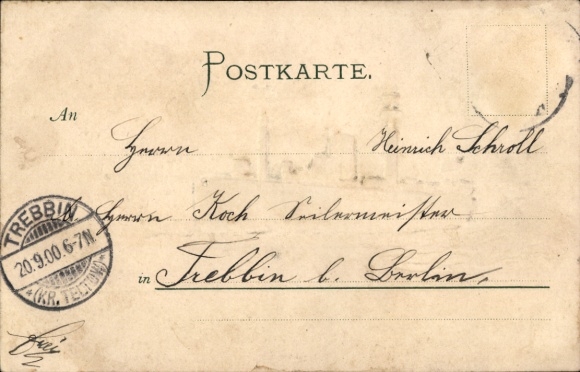 POSTKARTE.
An
Herrn Heinrich Schroll
Herrn Koch Seilermeister
in Trebbin b. Berlin.
TREBBIN
20.9.00.6-7N
*(KR. TELTOW)*
frei